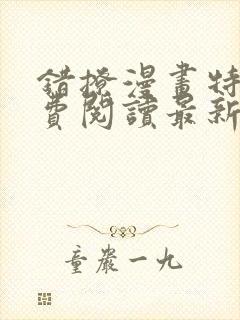 錯撩漫畫特
費閱讀最新
童嚴一九